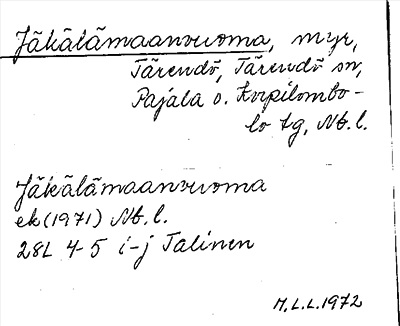 Jäkälämaanvuoma, myr,
Tärendö, Tärendö sn,
Pajala o. Korpilombo-
lo tg, Nb.l.
Jäkälämaanvuoma
ek(1971) Nb.l.
28L 4-5 i-j Talinen
M.L.L.1972